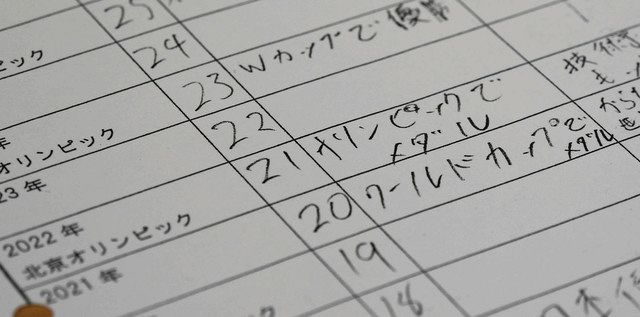 25
ピック
24
23 Wカップで優勝
年
オリンピック
22
23年
21 オリンピックで
メダル
2022年
北京オリンピック
20 ワールドカップで
メダル
2021年
19
18